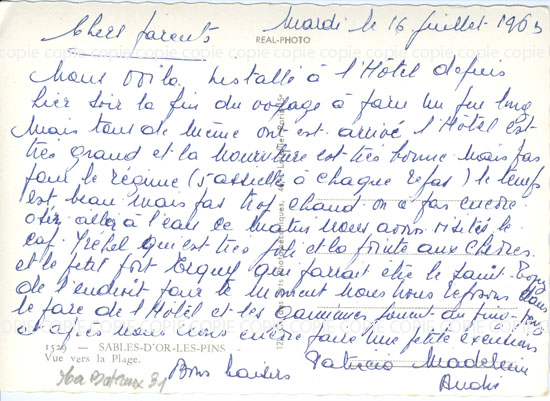 Chers parents Mardi le 16 juillet 1963
REAL-PHOTO
Nous voila installé à l'Hôtel depuis
hier soir la fin du voyage à faru un peu long
Mais tous de même ont est arrivé l'Hôtel est
très grand et la nourriture est très bonne Mais pas
pour le régime (5 assiettes à chaque repas) le temps
est beau mais pas trop chaud on a pas encore
osér aller à l'eau ce matin nous avons visités le
cap Frehel qui est très joli et la pointe aux chèvres
et le petit port Erquy qui parrait être le saint Tropez
de l'endroit pour le moment nous nous reposons dans
le parc de l'Hôtel et les gamines jouent du
et après nous irons encore faire une petite excursions
1529 SABLES-D'OR-LES-PINS
Vue vers la Plage.
Bons baisers Patricia Madeleine
André
copie copie copie copie copie copie